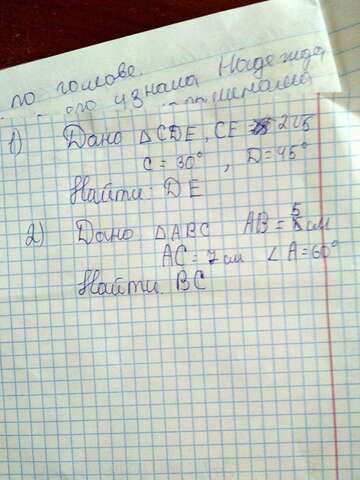 по голове.
узнала Надежда
1) Дано △CDE, CE = 2√5
C = 30°, D = 45°
Найти: DE
2) Дано △ABC AB = 5 см
AC = 7 см ∠A = 60°
Найти BC